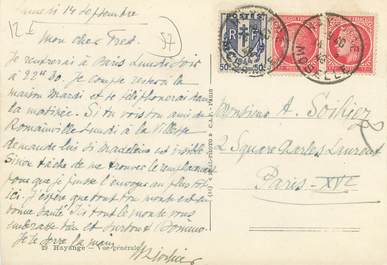 Samedi 14 Septembre
12h
57
Mon cher Fred.
Je rentrerai à Paris Lundi soir
à 22h30. Je compte rester à la
maison Mardi et te téléphonerai dans
la matinée. Si tu vois ton ami de
Romainville Lundi à la Villette
demande lui si Madeleine est
Sinon tâche de me trouver le remplaçant
pour que je puisse l'envoyer au plus tôt
ici. J'espère que tout le monde est en
bonne santé. Ici tout le monde vous
embrasse bien et surtout
Je te serre la main
29 Hayange - Vue générale
RF
50c
HAYANGE
MOSELLE
Monsieur A.
2 Square Charles Laurent
Paris-XVe